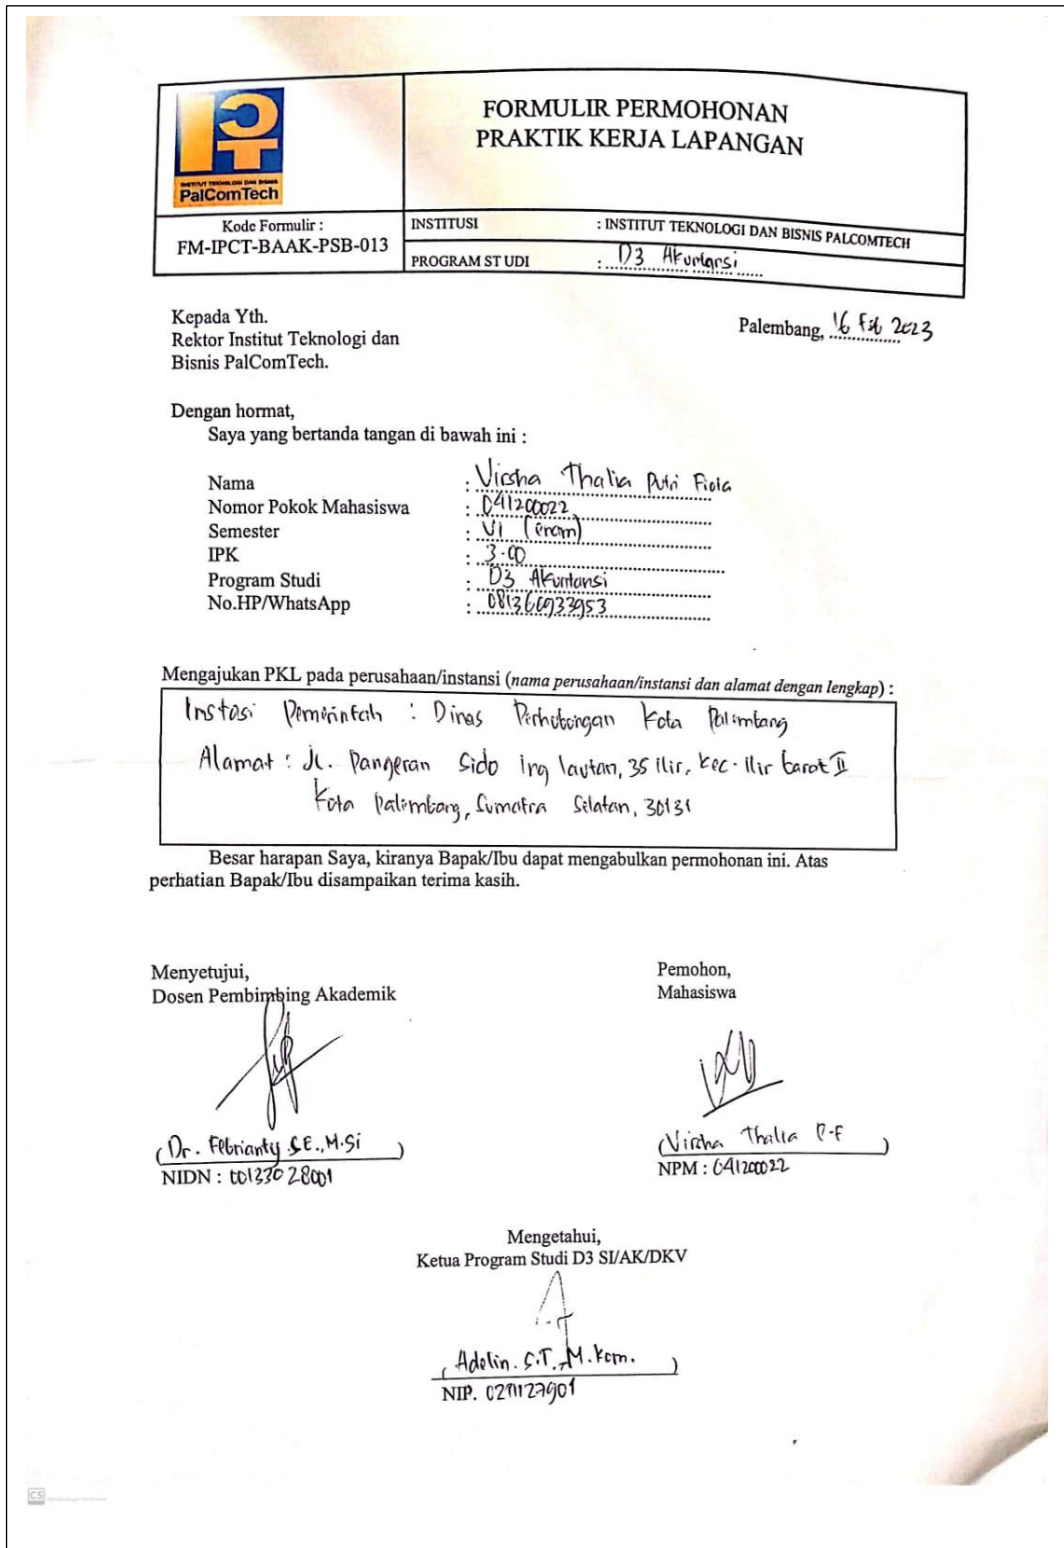 INSTITUT TEKNOLOGI DAN BISNIS
PalComTech
FORMULIR PERMOHONAN
PRAKTIK KERJA LAPANGAN
Kode Formulir :
FM-IPCT-BAAK-PSB-013
INSTITUSI : INSTITUT TEKNOLOGI DAN BISNIS PALCOMTECH
PROGRAM ST UDI : D3 Akuntansi
Kepada Yth.
Rektor Institut Teknologi dan
Bisnis PalComTech.
Palembang, 16 Feb 2023
Dengan hormat,
Saya yang bertanda tangan di bawah ini :
Nama : Virsha Thalia Putri Fiola
Nomor Pokok Mahasiswa : 041200022
Semester : VI (enam)
IPK : 3.00
Program Studi : D3 Akuntansi
No.HP/WhatsApp :
Mengajukan PKL pada perusahaan/instansi (nama perusahaan/instansi dan alamat dengan lengkap) :
Instasi Pemerintah : Dinas Perhubungan Kota Palembang
Alamat : Jl. Pangeran Sido ing lautan, 35 Ilir, Kec. Ilir barat II
Kota Palembang, Sumatra Selatan, 30131
Besar harapan Saya, kiranya Bapak/Ibu dapat mengabulkan permohonan ini. Atas
perhatian Bapak/Ibu disampaikan terima kasih.
Menyetujui,
Dosen Pembimbing Akademik
Pemohon,
Mahasiswa
(Dr. Febrianty S.E., M.Si)
NIDN :
(Virsha Thalia P.F)
NPM : 041200022
Mengetahui,
Ketua Program Studi D3 SI/AK/DKV
(Adelin. S.T., M.Kom.)
NIP.
CS